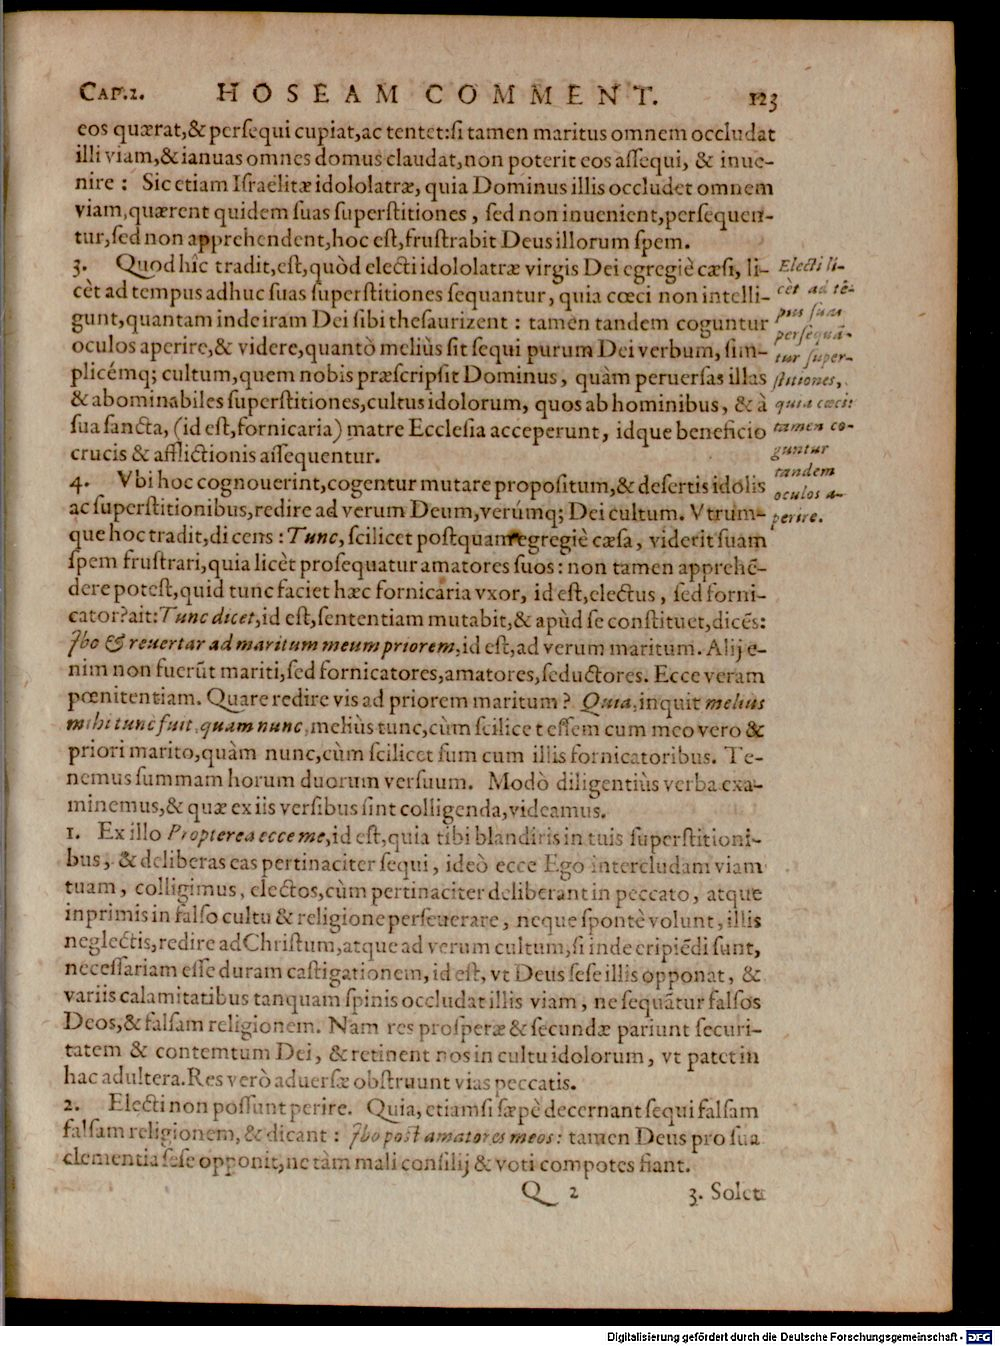 CAP. 2. HOSEAM COMMENT. 123
eos quærat,& persequi cupiat,ac tentet:si tamen maritus omnem occludat
illi viam,& ianuas omnes domus claudat,non poterit eos assequi, & inue-
nire : Sic etiam Israëlitæ idololatræ, quia Dominus illis occludet omnem
viam,quærent quidem suas superstitiones , sed non inuenient,persequen-
tur,sed non apprehendent,hoc est,frustrabit Deus illorum spem.
3. Quod hîc tradit,est,quòd electi idololatræ virgis Dei egregiè cæsi, li-
cèt ad tempus adhuc suas superstitiones sequantur, quia cœci non intelli-
gunt,quantam inde iram Dei sibi thesaurizent : tamen tandem coguntur
oculos aperire,& videre,quantò meliùs sit sequi purum Dei verbum, sim-
plicémq; cultum,quem nobis præscripsit Dominus, quàm peruersas illas
& abominabiles superstitiones,cultus idolorum, quos ab hominibus, & à
sua sancta, (id est,fornicaria) matre Ecclesia acceperunt, idque beneficio
crucis & afflictionis assequentur.
Electi li-
cèt ad tē-
pus suas
persequā-
tur super-
stitiones,
quia cœci:
tamen co-
guntur
tandem
oculos a-
perire.
4. Vbi hoc cognouerint,cogentur mutare propositum,& desertis idolis
ac superstitionibus,redire ad verum Deum,verúmq; Dei cultum. Vtrum-
que hoc tradit,dicens : Tunc, scilicet postquam egregiè cæsa, viderit suam
spem frustrari,quia licèt prosequatur amatores suos : non tamen apprehē-
dere potest,quid tunc faciet hæc fornicaria vxor, id est,electus, sed forni-
cator?ait:Tunc dicet,id est,sententiam mutabit,& apùd se constituet,dicēs:
Ibo & reuertar ad maritum meum priorem,id est,ad verum maritum. Alij e-
nim non fuerūt mariti,sed fornicatores,amatores,seductores. Ecce veram
pœnitentiam. Quare redire vis ad priorem maritum? Quia,inquit melius
mihi tunc fuit, quam nunc,meliùs tunc,cùm scilicet essem cum meo vero &
priori marito,quàm nunc,cùm scilicet sum cum illis fornicatoribus. Te-
nemus summam horum duorum versuum. Modò diligentiùs verba exa-
minemus,& quæ ex iis versibus sint colligenda,videamus.
1. Ex illo Propterea ecce me,id est,quia tibi blandiris in tuis superstitioni-
bus, & deliberas eas pertinaciter sequi, ideò ecce Ego intercludam viam
tuam, colligimus, electos,cùm pertinaciter deliberant in peccato, atque
inprimis in falso cultu & religione perseuerare, neque spontè volunt, illis
neglectis,redire ad Christum,atque ad verum cultum,si inde eripiēdi sunt,
necessariam esse duram castigationem, id est, vt Deus sese illis opponat, &
variis calamitatibus tanquam spinis occludat illis viam, ne sequātur falsos
Deos,& falsam religionem. Nam res prosperæ & secundæ pariunt securi-
tatem & contemtum Dei, & retinent nos in cultu idolorum, vt patet in
hac adultera.Res verò aduersæ obstruunt vias peccatis.
2. Electi non possunt perire. Quia, etiamsi sæpè decernant sequi falsam
falsam religionem,& dicant : Ibo post amatores meos: tamen Deus pro sua
clementia sese opponit,ne tàm mali consilij & voti compotes fiant.
Q 2 3. Solet
Digitalisierung gefördert durch die Deutsche Forschungsgemeinschaft - DFG